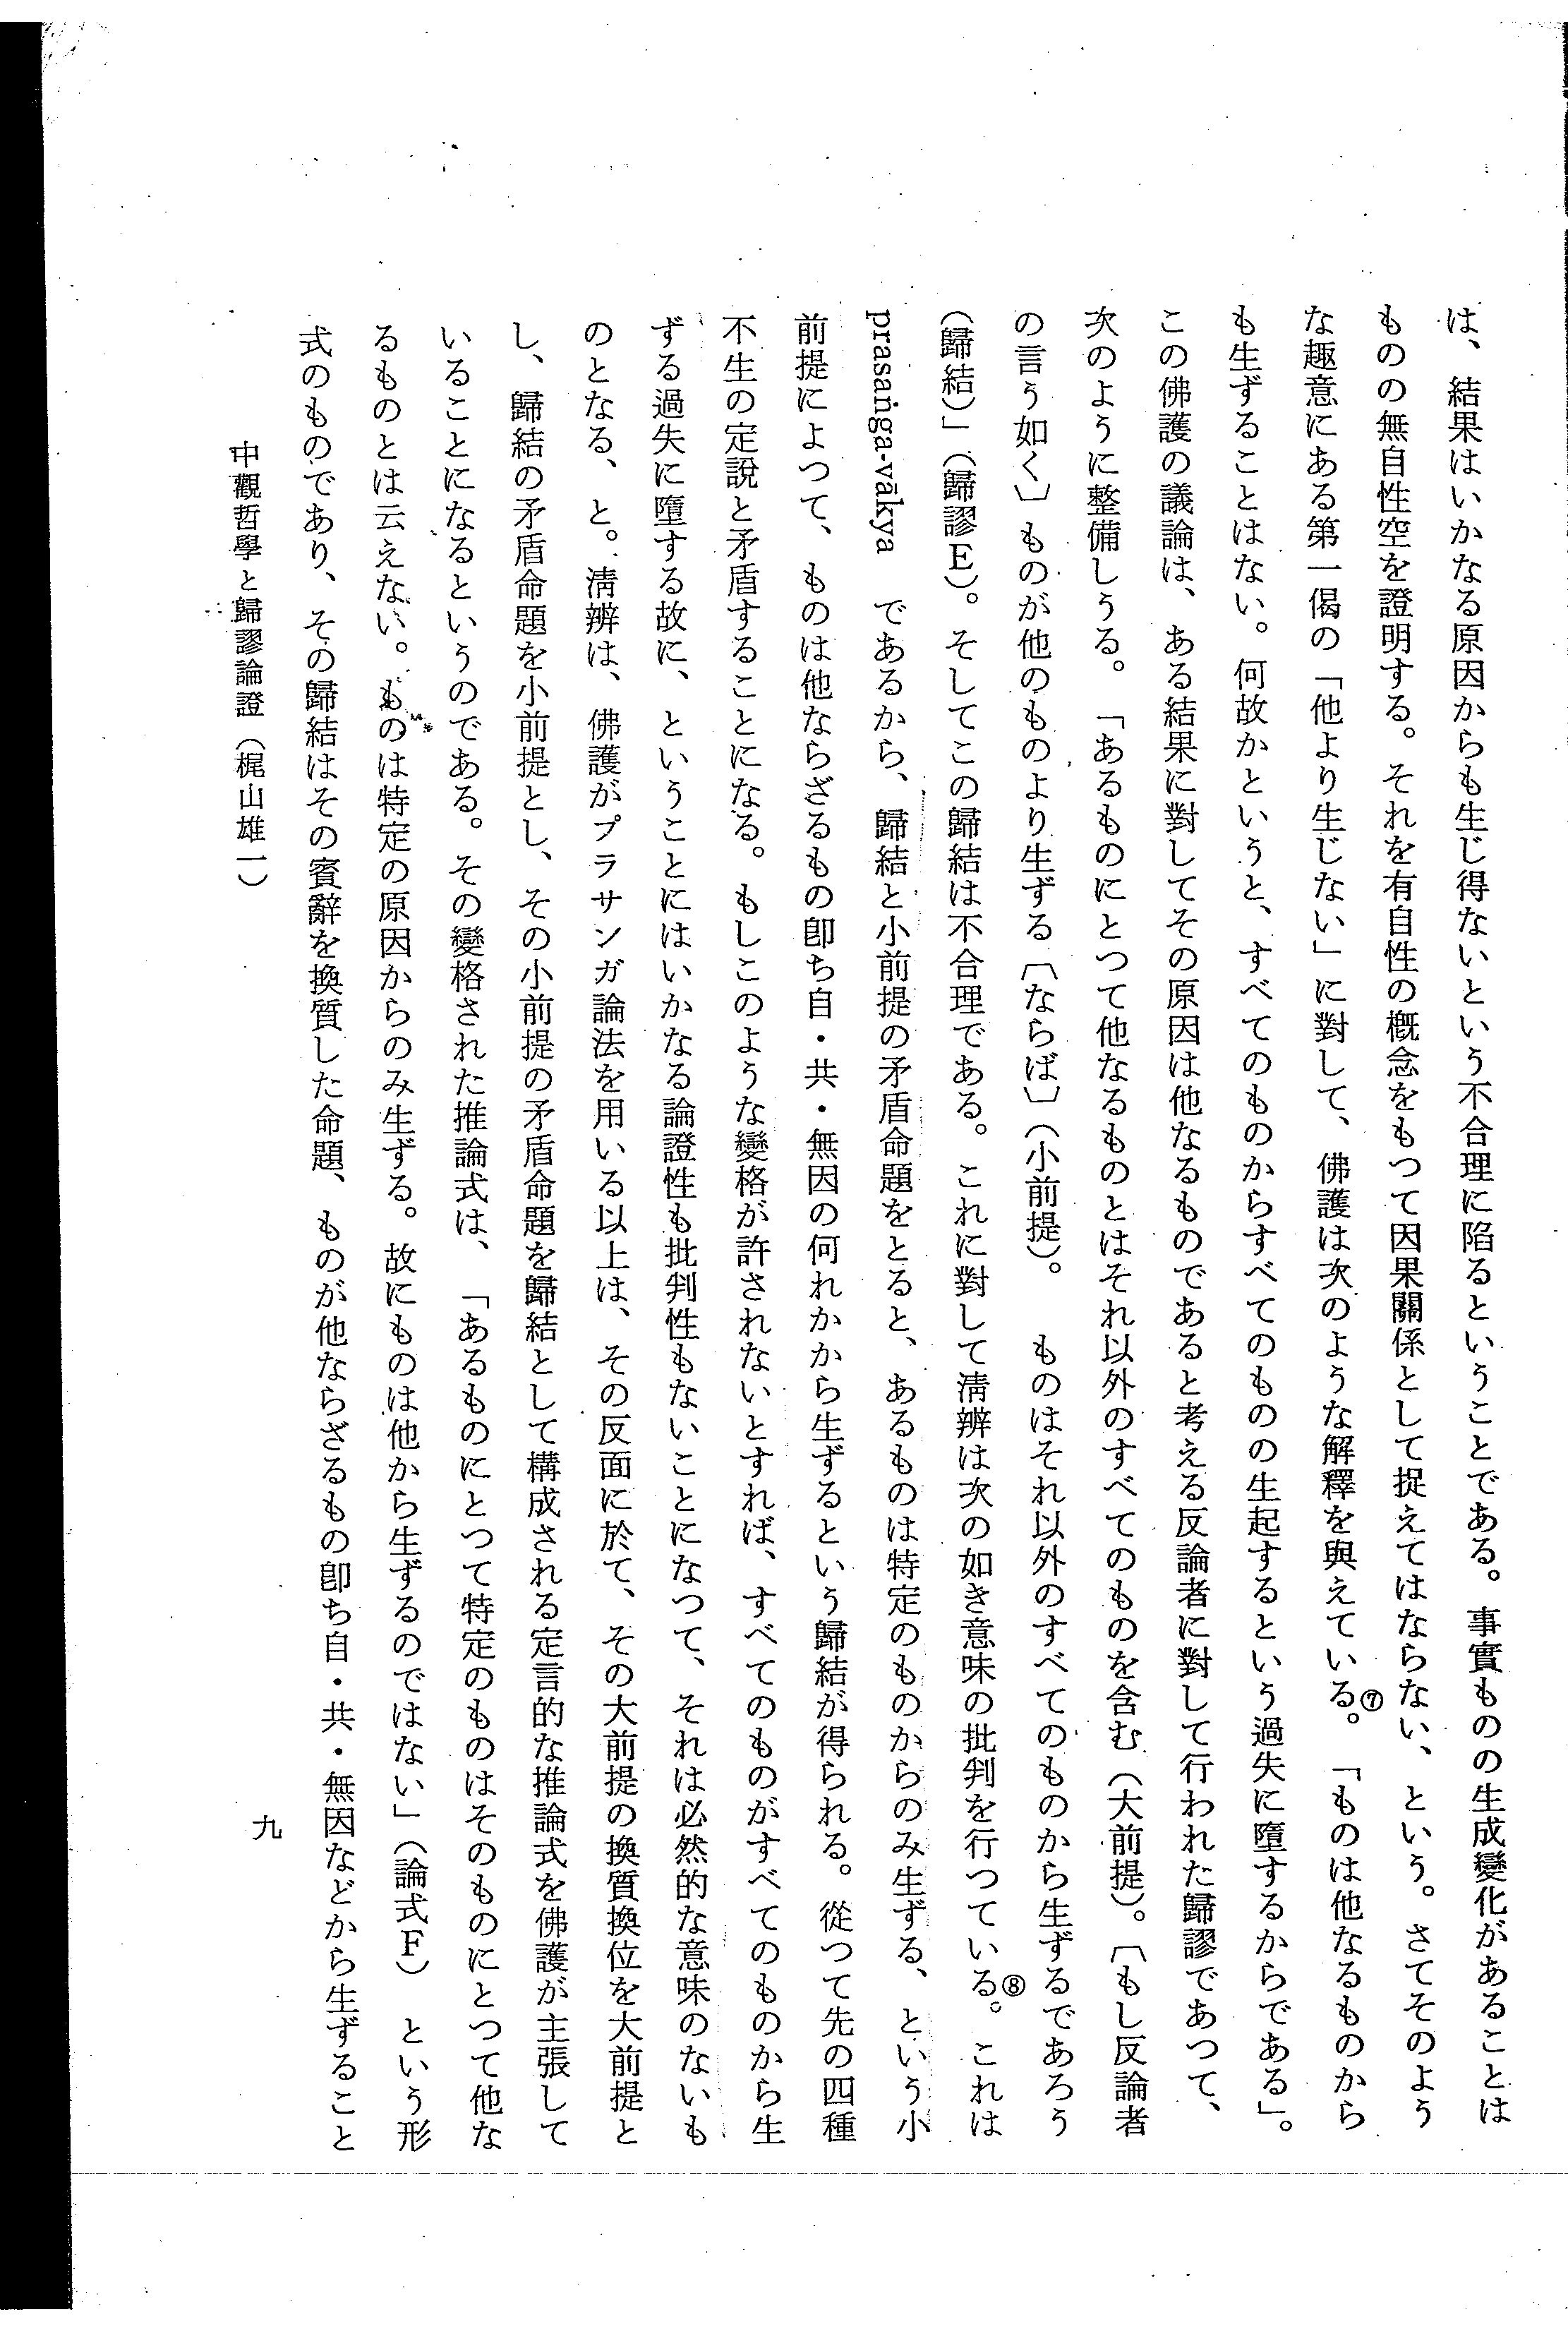 は、結果はいかなる原因からも生じ得ないという不合理に陷るということである。事實ものの生成變化があることは
ものの無自性空を證明する。それを有自性の概念をもつて因果關係として捉えてはならない、という。さてそのよう
な趣意にある第一偈の「他より生じない」に對して、佛護は次のような解釋を與えている。⑦「ものは他なるものから
も生ずることはない。何故かというと、すべてのものからすべてのものの生起するという過失に墮するからである」。
この佛護の議論は、ある結果に對してその原因は他なるものであると考える反論者に對して行われた歸謬であつて、
次のように整備しうる。「あるものにとつて他なるものとはそれ以外のすべてのものを含む（大前提）。〔もし反論者
の言う如く〕ものが他のものより生ずる〔ならば〕（小前提）。ものはそれ以外のすべてのものから生ずるであろう
（歸結）」（歸謬E）。そしてこの歸結は不合理である。これに對して淸辨は次の如き意味の批判を行つている。⑧これは
prasaṅga-vākya であるから、歸結と小前提の矛盾命題をとると、あるものは特定のものからのみ生ずる、という小
前提によつて、ものは他ならざるもの卽ち自・共・無因の何れかから生ずるという歸結が得られる。從つて先の四種
不生の定說と矛盾することになる。もしこのような變格が許されないとすれば、すべてのものがすべてのものから生
ずる過失に墮する故に、ということにはいかなる論證性も批判性もないことになつて、それは必然的な意味のないも
のとなる、と。淸辨は、佛護がプラサンガ論法を用いる以上は、その反面に於て、その大前提の換質換位を大前提と
し、歸結の矛盾命題を小前提とし、その小前提の矛盾命題を歸結として構成される定言的な推論式を佛護が主張して
いることになるというのである。その變格された推論式は、「あるものにとつて特定のものはそのものにとつて他な
るものとは云えない。ものは特定の原因からのみ生ずる。故にものは他から生ずるのではない」（論式F）という形
式のものであり、その歸結はその賓辭を換質した命題、ものが他ならざるもの卽ち自・共・無因などから生ずること
中觀哲學と歸謬論證（梶山雄一）
九